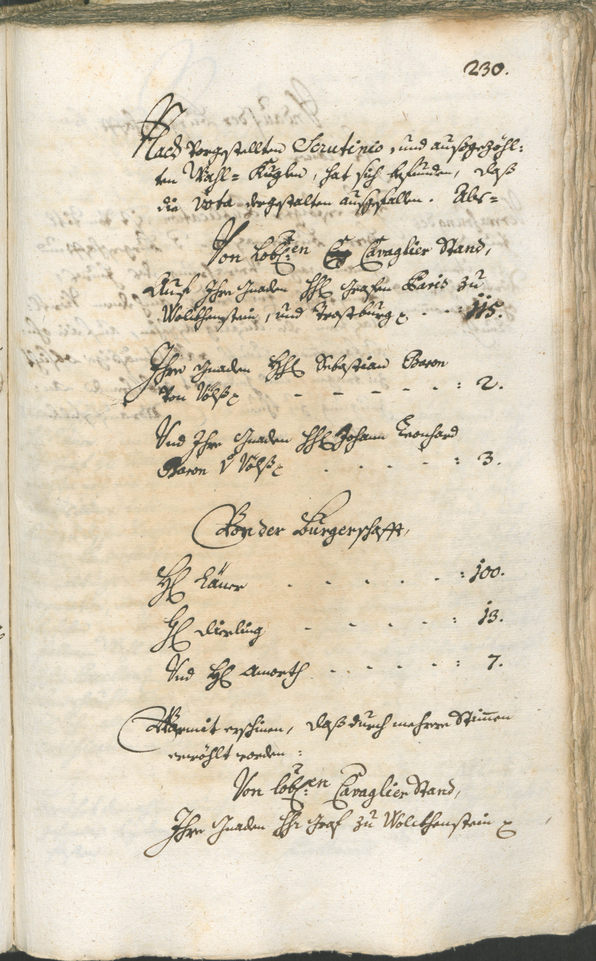 230.
Nach vorgestellten Scrutinio, und außgezöhl-
ten Wahl-Kuglen, hat sich befunden, daß
die Vota dergestalten außgefallen. Als-
Von lobl:en Cavaglier Stand,
Auf Ihre Gnaden HH Grafen Paris zu
Wolckhenstein, und Trostburg - - 115.
Ihro Gnaden HH Sebastian Baron
von Völß - - - - - : 2.
Und Ihre Gnaden HH Johann Leonhard
Baron v Völß - - - - - : 3.
Von der Burgerschafft,
H - - - - - : 100.
H Dierling - - - - - : 13.
Und H Amorth - - - - - : 7.
Warmit erschinen, daß durch mehrere Stimmen
erwöhlt worden:
Von lobl:en Cavaglier Stand,
Ihre Gnaden HH Graf zu Wolckhenstein